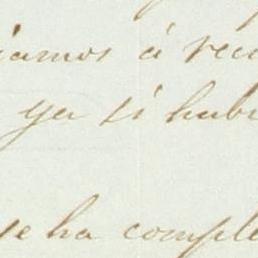 iamos á rec
ya si hubi
se ha comple